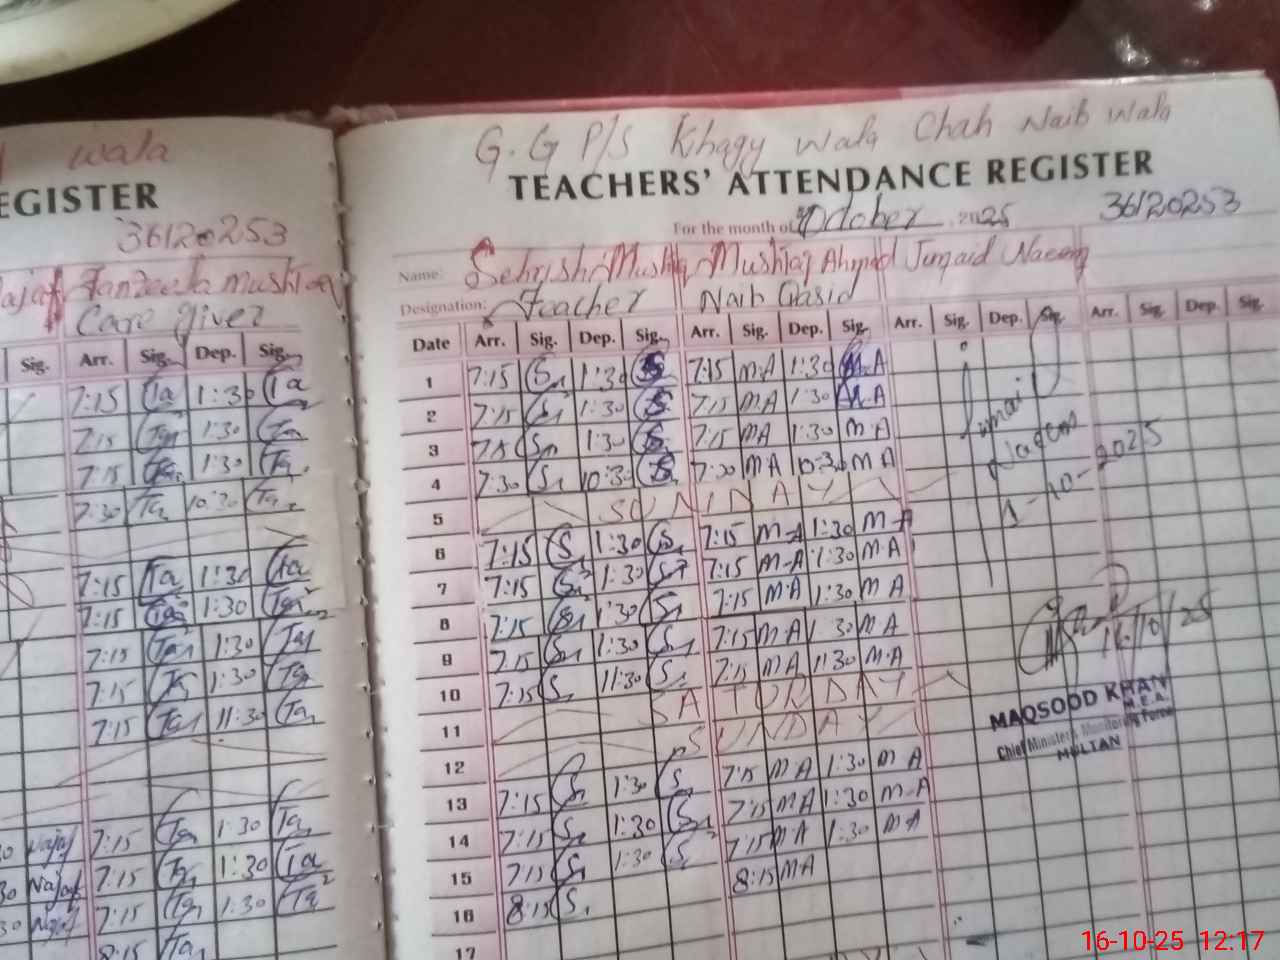 wala
EGISTER
36120253
Tanzeela Mushtaq
Care giver
Sig. Arr. Sig. Dep. Sig.
7:15 Ta 1:30 Ta
7:15 Ta 1:30 Ta
7:15 Ta 1:30 Ta
7:30 Ta 10:30 Ta
7:15 Ta 1:30 Ta
7:15 Ta 1:30 Ta
7:15 Ta 1:30 Ta
7:15 Ta 1:30 Ta
7:15 Ta 11:30 Ta
30 Najaf 7:15 Ta 1:30 Ta
30 Najaf 7:15 Ta 1:30 Ta
30 Najaf 7:15 Ta 1:30 Ta
8:15 Ta
G.G P/S Khagy Wala Chah Naib Wala
TEACHERS' ATTENDANCE REGISTER
For the month of October 2025 36120253
Name: Sehrish Mushtaq Mushtaq Ahmad Junaid Naeem
Designation: Teacher Naib Qasid
Date Arr. Sig. Dep. Sig. Arr. Sig. Dep. Sig. Arr. Sig. Dep. Sig. Arr. Sig. Dep. Sig.
1 7:15 S 1:30 S 7:15 M.A 1:30 M.A
2 7:15 S 1:30 S 7:15 M.A 1:30 M.A
3 7:15 S 1:30 S 7:15 MA 1:30 M.A
4 7:30 S 10:30 S 7:30 MA 10:30 M A
5 SUNDAY
6 7:15 S 1:30 S 7:15 M-A 1:30 M-A
7 7:15 S 1:30 S 7:15 M-A 1:30 M.A
8 7:15 S 1:30 S 7:15 M.A 1:30 M A
9 7:15 S 1:30 S 7:15 M A 1:30 M A
10 7:15 S 11:30 S 7:15 M A 11:30 M.A
11 SATURDAY
12 SUNDAY
13 7:15 S 1:30 S 7:15 M A 1:30 M A
14 7:15 S 1:30 S 7:15 M A 1:30 M-A
15 7:15 S 1:30 S 7:15 M A 1:30 M A
16 8:15 S 8:15 MA
17
Junaid
Naeem
1-10-2025
16/10/25
MAQSOOD KHAN
M.E.A
Chief Minister's Monitoring Force
MULTAN
16-10-25 12:17